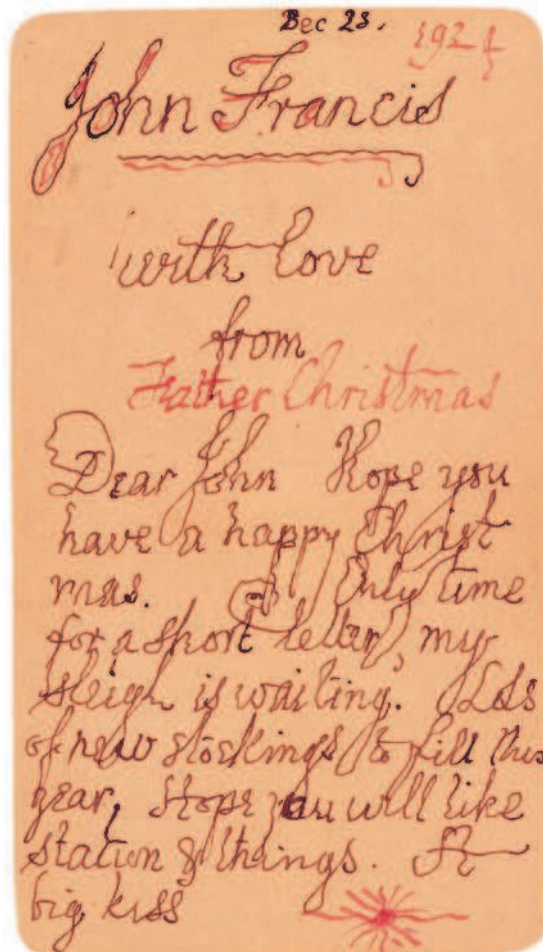 Dec 23. 1924
John Francis
with love
from
Father Christmas
Dear John Hope you
have a happy Christ
mas. Only time
for a short letter, my
sleigh is waiting. Lots
of new stockings to fill this
year, Hope you will like
station & things. A
big kiss